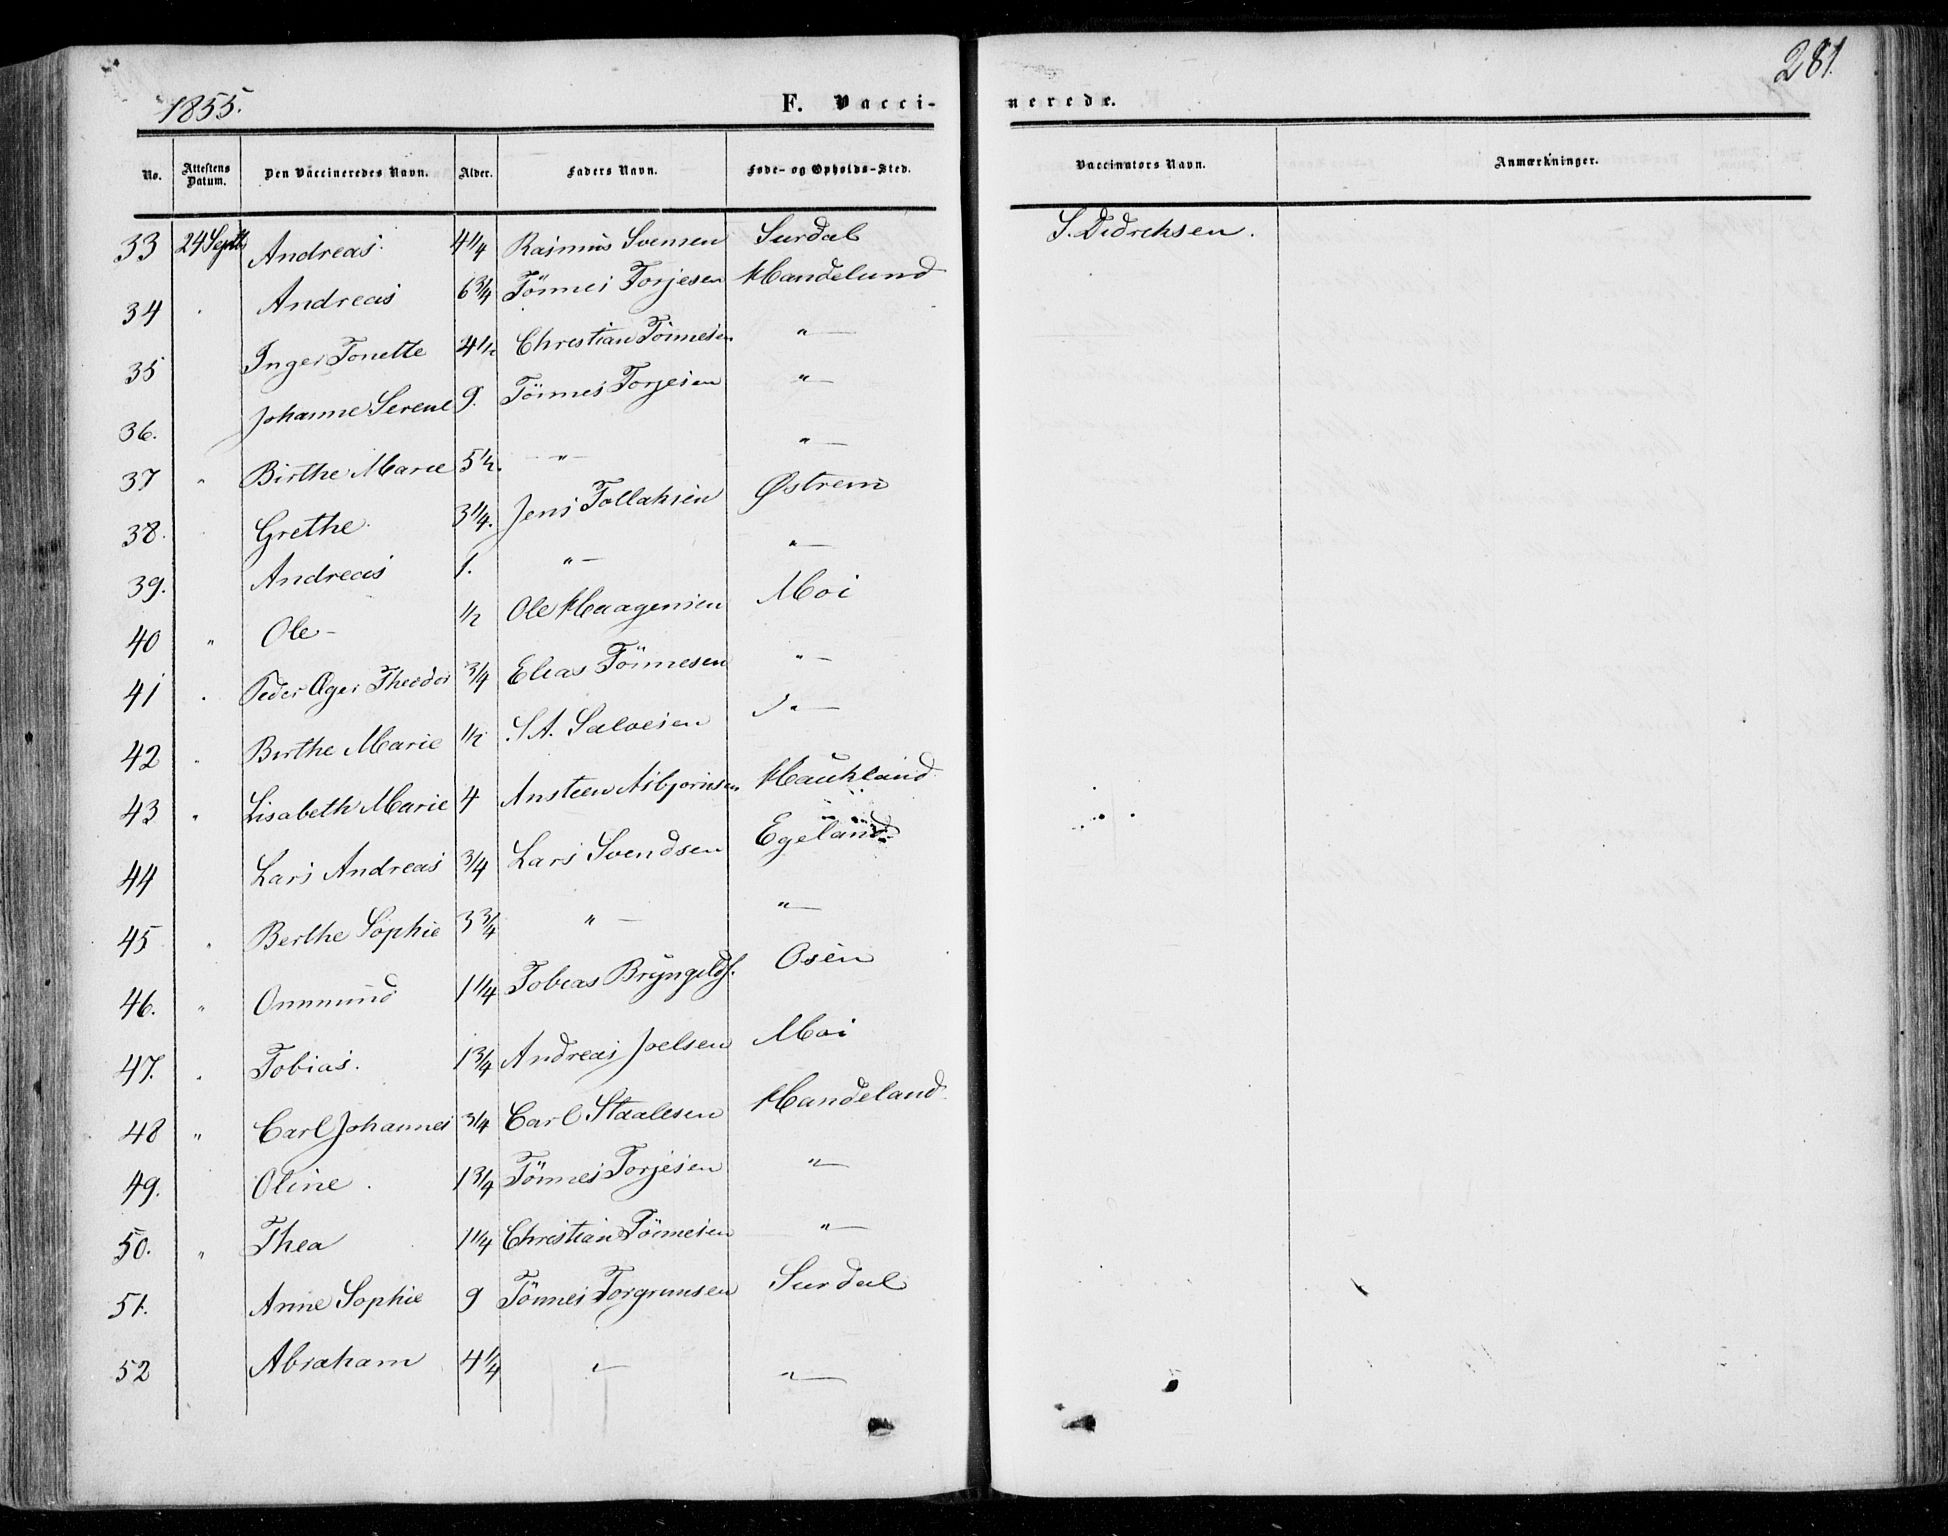 281.
1855.
F. Vaccinerede.
No. Attestens Datum. Den Vaccineredes Navn. Alder. Faders Navn. Føde- og Opholds-Sted. Vaccinators Navn. Anmærkninger.
33 24 Septb Andreas. 4 1/4 Rasmus Svensen Surdal S. Didrichsen.
34 " Andreas 6 3/4 Tönnes Torjesen Handeland
35 Inger Tonette 4 1/2 Christian Tönnesen "—
36. Johanne Serene 9. Tönnes Torjesen "—
37 " Birthe Marie 5 1/2. —"— "—
38. Grethe. 3 1/4. Jens Tollaksen Østrem
39. Andreas 1. "— "—
40 " Ole— 1/2 Ole Haagensen Moi
41 " Peder Ager Theodor 3/4 Elias Tönnesen "—
42 " Birthe Marie 1/2 S. A. Salvesen "—
43 " Lisabeth Marie 4 Ansteen Asbjornsen Haukland
44 Lars Andreas 3/4 Lars Svendsen Egeland
45 " Berthe Sophie 3 3/4 "— "—
46. " Ommund 1 1/4 Tobias Bryngelds. Osen
47. " Tobias. 1 3/4 Andreas Joelsen Moi
48 " Carl Johannes 3/4 Carl Staalesen Handeland
49. Oline. 1 3/4 Tönnes Torjesen "—
50. " Thea 1 1/4 Christian Tönnesen "—
51. Anne Sophie 9 Tönnes Torgrimsen Surdal
52 Abraham 4 1/4 "— "—